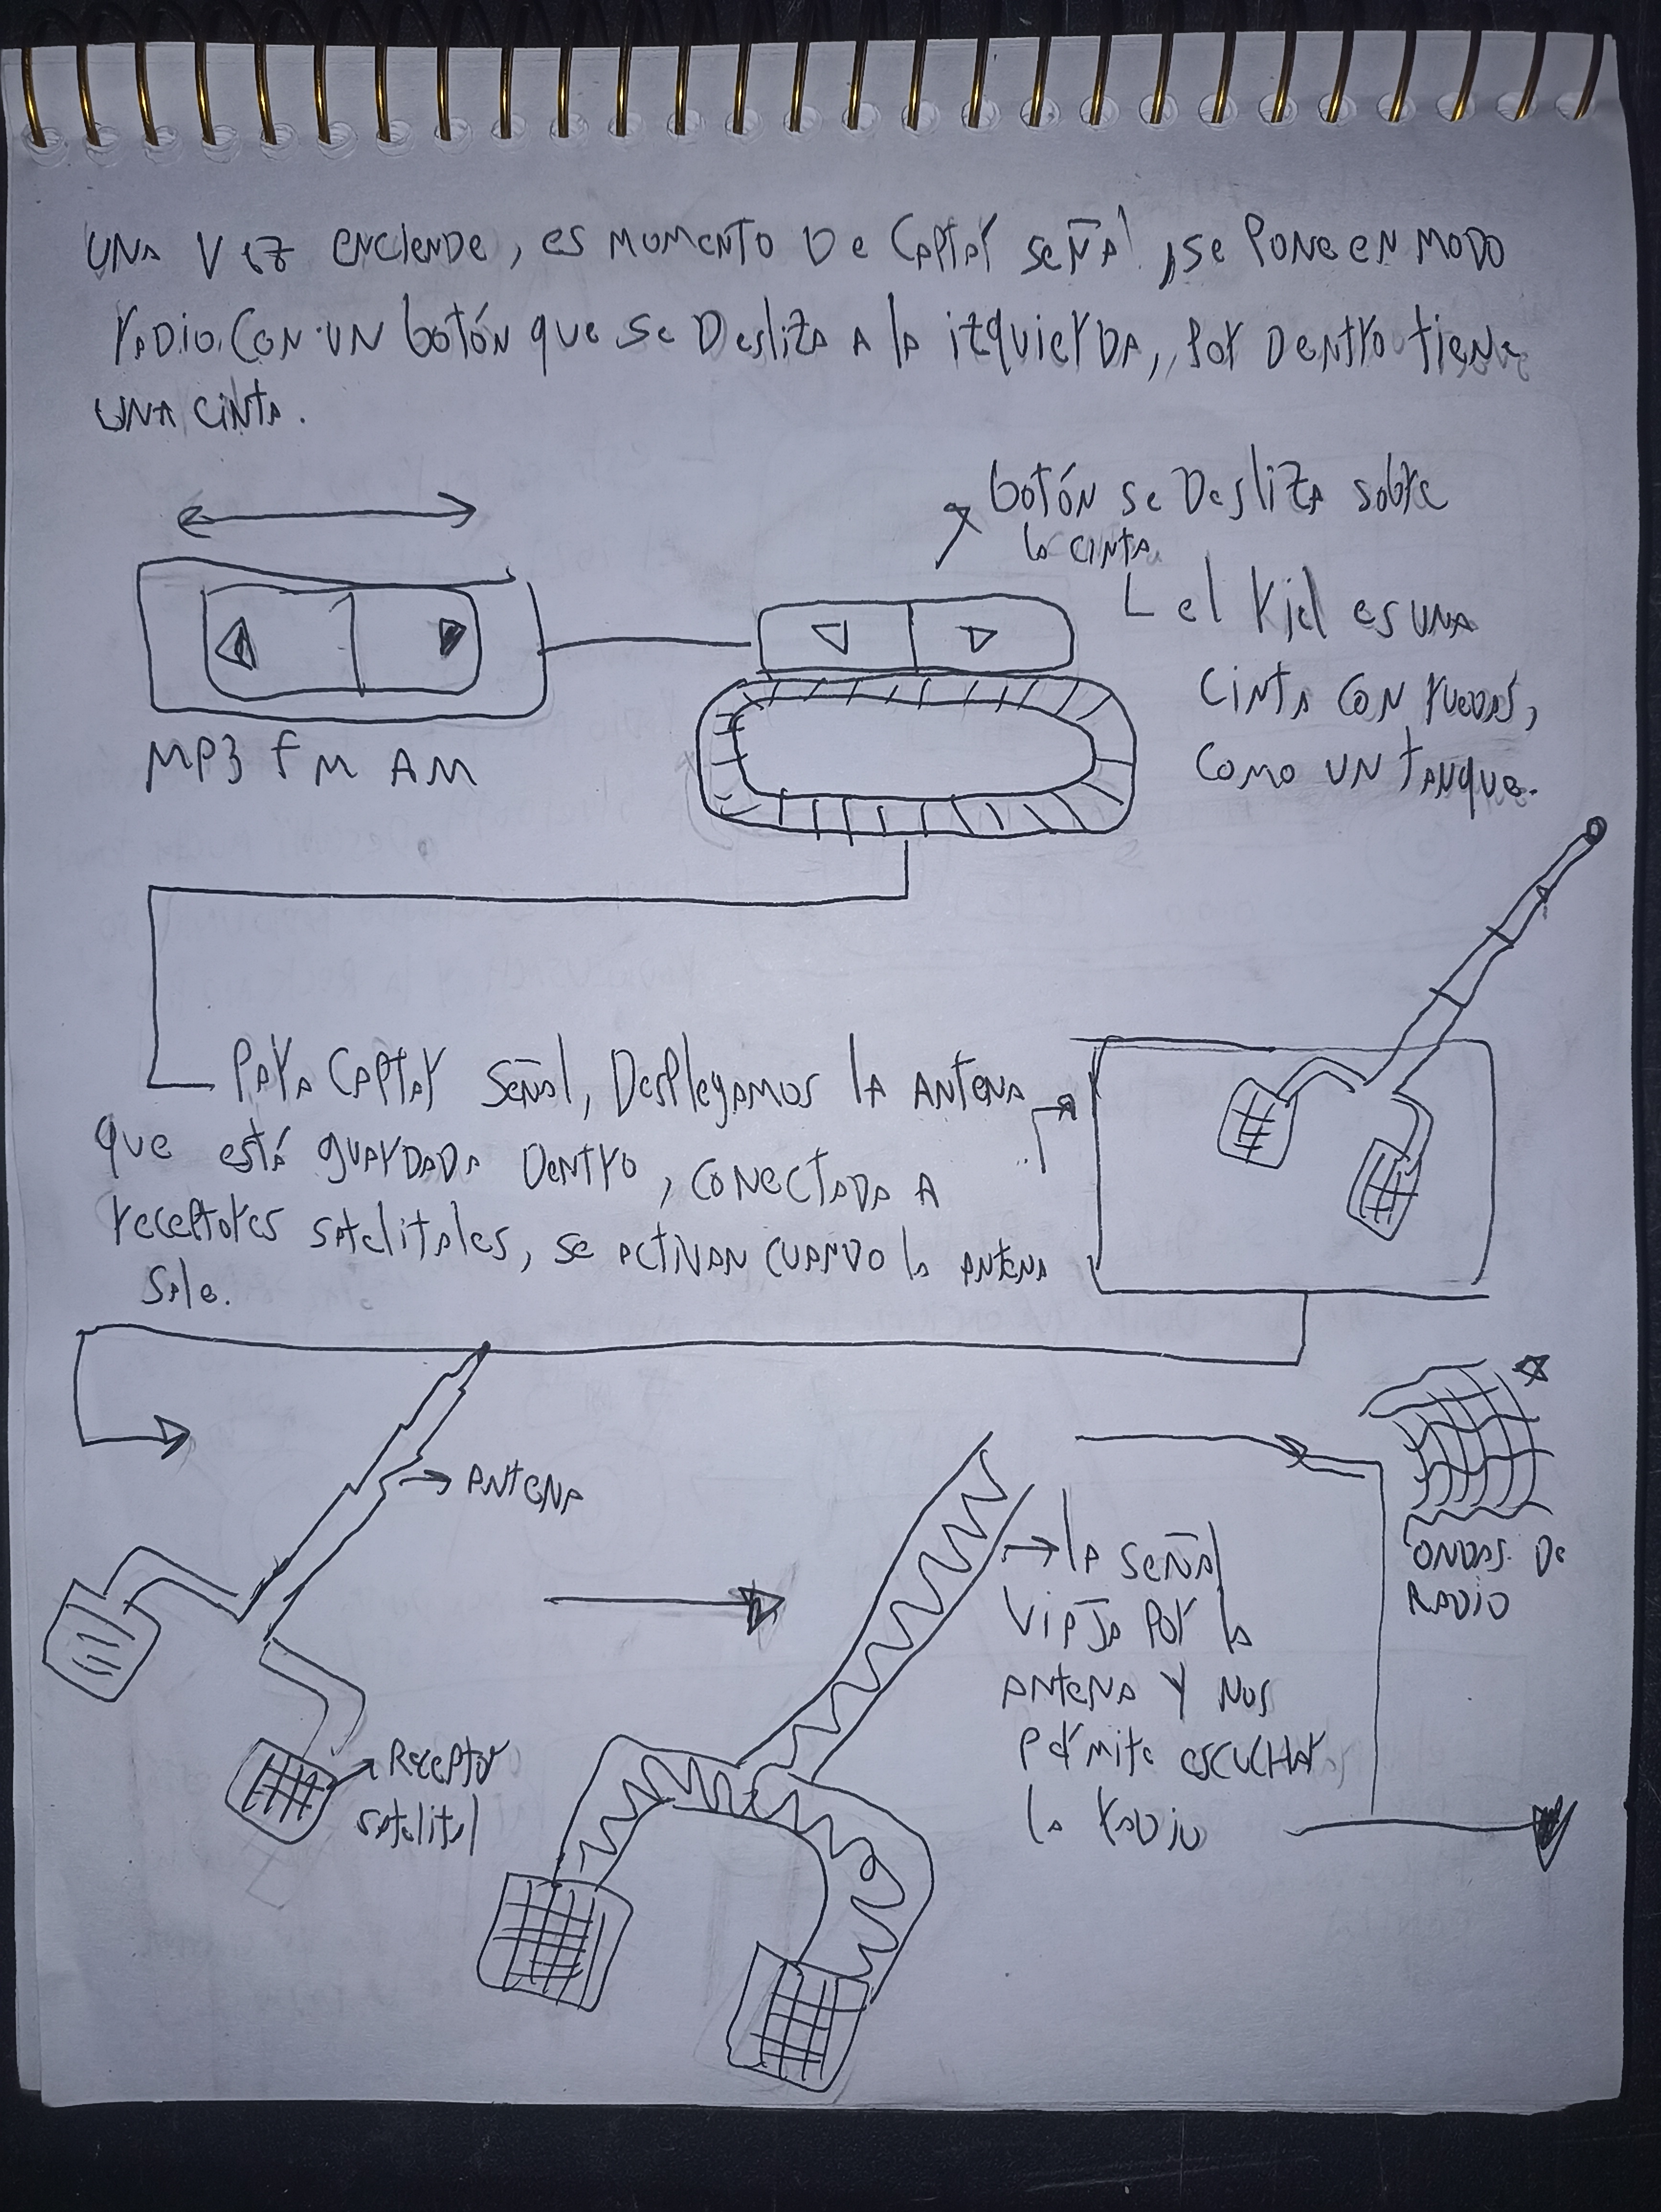 UNA VEZ ENCIENDE, ES MOMENTO DE CAPTAR SEÑAL, SE PONE EN MODO
RADIO. CON UN botón que Se DesLiza A la izquierDA, POR DENTRO tiene
UNA CINTA.
botón se Desliza sobre
la CINTA
el riel es UNA
CINTA CON RUEDAS,
COMO UN TANQUE.
MP3 FM AM
PARA CAPTAR SEÑAL, DESPLEGAMOS LA ANTENA
que está guardada DENTRO, CONECTADA A
receptores satelitales, se activan cuando la antena
Sale.
ANTENA
Receptor
satelital
la SEÑAL
VIAJA POR la
ANTENA Y NOS
permite escuchar
la radio
ONDAS DE
RADIO